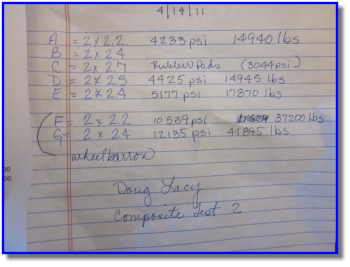 4/14/11
A = 2x2.2. 4233 psi 14940 lbs
B = 2x24
C = 2x27 Rubber Pads (3044psi)
D = 2x25 4425 psi 14945 lbs
E = 2x24 5177 psi 17870 lbs
F = 2x22 10539 psi 37200 lbs
G = 2x24 12135 psi 41845 lbs
wheelbarrow
Doug Lacy
Composite Test 2